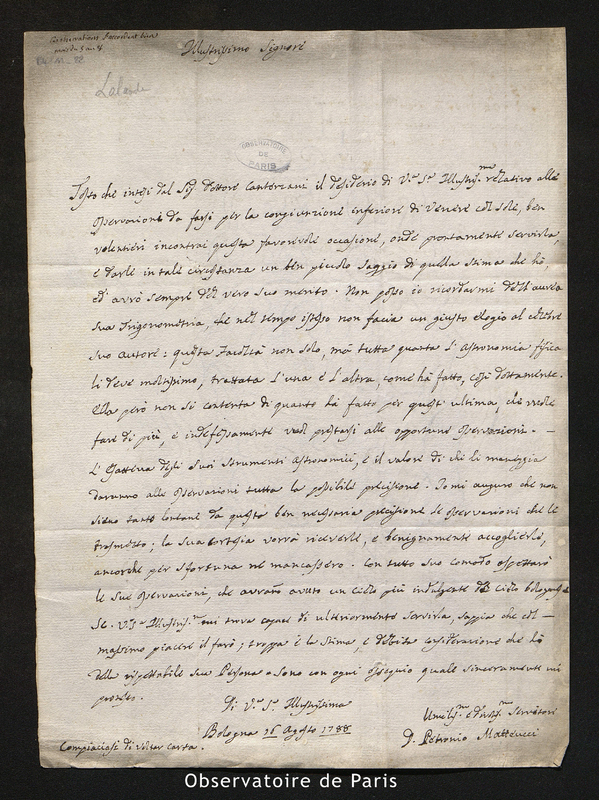 Illustrissimo Signore
Lalande
OBSERVATOIRE
DE
PARIS
Tosto che intesi dal Sig. Dottore Canterzani il desiderio di V.ra S.ria Illustriss.ma relativo alle
Osservazioni da farsi per la congiunzione inferiore di Venere col Sole, ben
volentieri incontrai questa favorevole occasione, onde prontamente servirla,
e darle in tale circostanza un ben piccolo saggio di quella stima che hò,
ed avrò sempre del vero suo merito. Non posso io ricordarmi dell'aurea
sua Trigonometria, che nel tempo istesso non facia un giusto elogio al celebre
suo autore: questa Facoltà non solo, mà tutta quanta l'Astronomia fisica
li deve moltissimo, trattata l'una e l'altra, come hà fatto, così dottamente.
Ella però non si contenta di quanto hà fatto per quest'ultima, che vuole
fare di più, e indefessamente vuol prestarsi alle opportune Osservazioni. —
L'esattezza degli Suoi Strumenti Astronomici, e il valore di chi li maneggia
daranno alle Osservazioni tutta la possibile precisione. Io mi auguro che non
siano tanto lontane da questa ben necessaria precisione le osservazioni che le
trasmetto; la sua cortesia vorrà riceverle, e benignamente accoglierle,
ancorchè per sfortuna ne mancassero. Con tutto suo comodo aspettarò
le sue Osservazioni, che avranno avuto un cielo più indulgente del cielo bolognese
Se V.ra S.ria Illustriss.ma mi trova capace di ulteriormente servirla, sappia che col —
massimo piacere il farò; troppa è la stima, e debita considerazione che hò
della rispettabile sua Persona e sono con ogni ossequio quale sinceramente mi
protesto.
Di V.ra S.ria Illustrissima
Bologna 16 Agosto 1788
Umiliss.mo e Devotiss.mo Servitore
D. Petronio Matteucci
Compiaciasi di voltar carta.
Observatoire de Paris